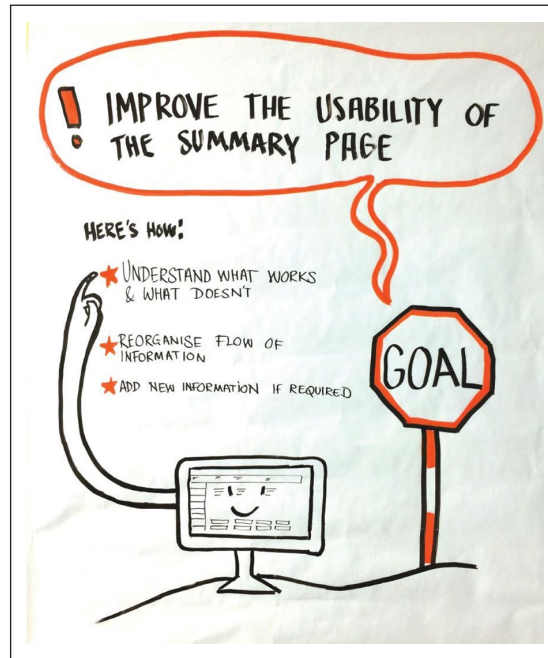 ! IMPROVE THE USABILITY OF
THE SUMMARY PAGE
HERE'S HOW:
UNDERSTAND WHAT WORKS
& WHAT DOESN'T
REORGANISE FLOW OF
INFORMATION
ADD NEW INFORMATION IF REQUIRED
GOAL